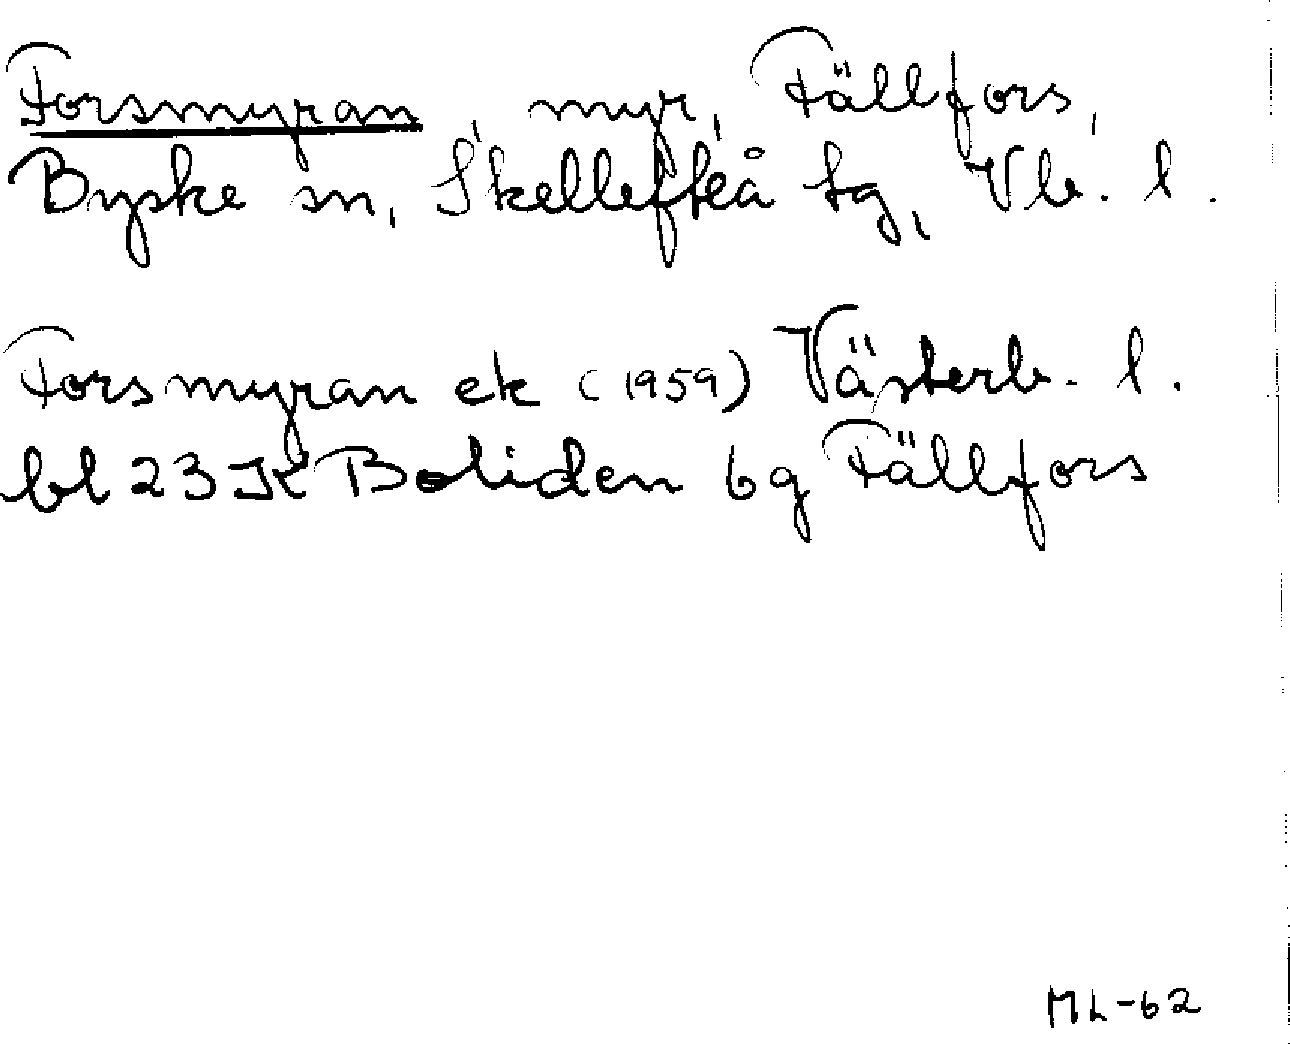 Forsmyran, myr, Fällfors,
Byske sn, Skellefteå tg, Vb. l.
Forsmyran ek (1959) Västerb. l.
bl 23 K Boliden 6g Fällfors
ML-62